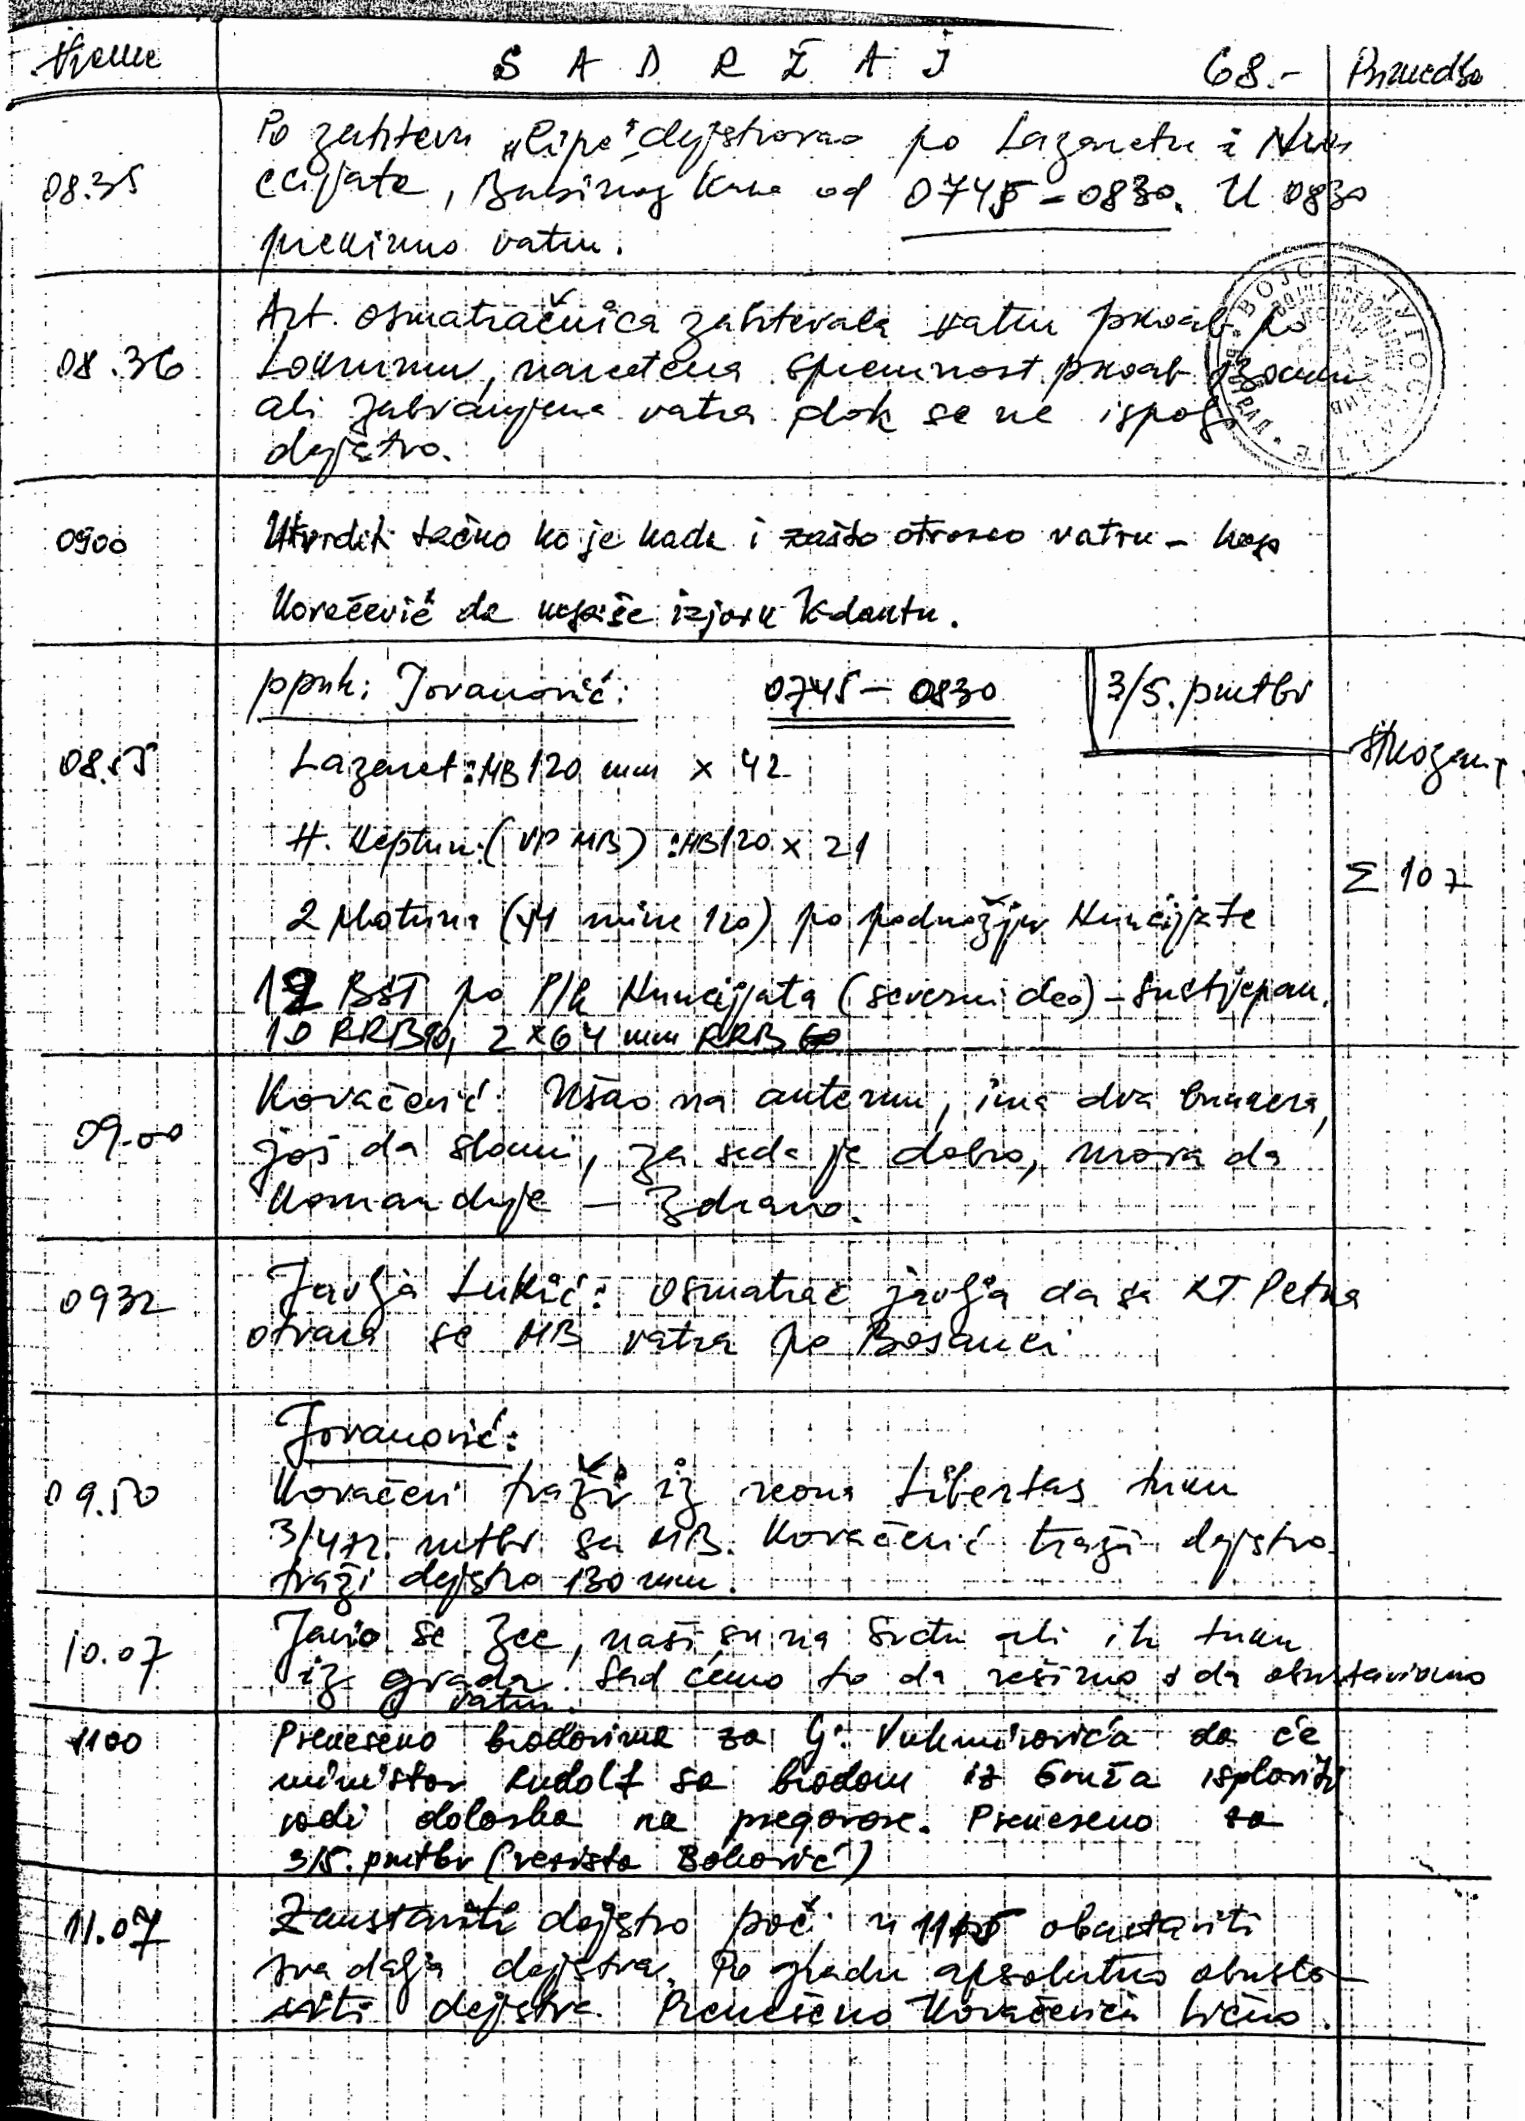 Vreme S A D R Ž A J 68.- Primedba
08.35 Po zahtevu „Lipe" dejstvovao po Lazaretu i Nun
cijata, Babinog Kuka od 0745-0830. U 0830
prekinuo vatru.
08.36 Art. osmatračnica zahtevala vatru pkoab po
Lokrumu, naređena spremnost pkoab
ali zabranjena vatra dok se ne ispolji
dejstvo.
ВОЈСКА ЈУГОСЛАВИЈЕ
0900 Utvrditi tačno ko je kada i zašto otvorio vatru - kap
Kovačević da napiše izjavu K-dantu.
08.55 ppuk: Jovanović: 0745 - 0830 3/5. pmtbr
Lazaret: MB 120 mm x 42
H. Neptun: (VP MB) : MB 120 x 21
2 plotuna (44 mine 120) po podnožju Nuncijate
Σ 107
12 BST po P/k Nuncijata (severni deo) - Sustjepan.
10 RRB 90, 2 x 64 mm RRB
09.00 Kovačević: Ušao na antenu, ima dva bunkera,
još da slomi, za sada je dobro, mora da
komanduje - Zdravo.
0932 Javlja Lukić: Osmatrač javlja da sa RT Petka
otvara se MB vatra po Bosanci
09.50 Jovanović:
Kovačević traži iz reona Libertas tuku
3/472. mtbr sa MB. Kovačević traži dejstvo
traži dejstvo 130 mm.
10.07 Javio se Zec, naši su na Srđu ali ih tuku
iz grada. Sad ćemo to da rešimo i da obustavimo
vatru.
1100 Preneseno brodovima za G. Vukmirovića da će
ministar Rudolf sa brodom iz Gruža isploviti
radi dolaska na pregovore. Preneseno za
3/5. pmtbr (vezista Boković)
11.07 Zaustaviti dejstvo poč. u 1115 obustaviti
sva dalja dejstva. Po gradu apsolutno obusta-
viti dejstva. Preneseno Kovačeviću lično.